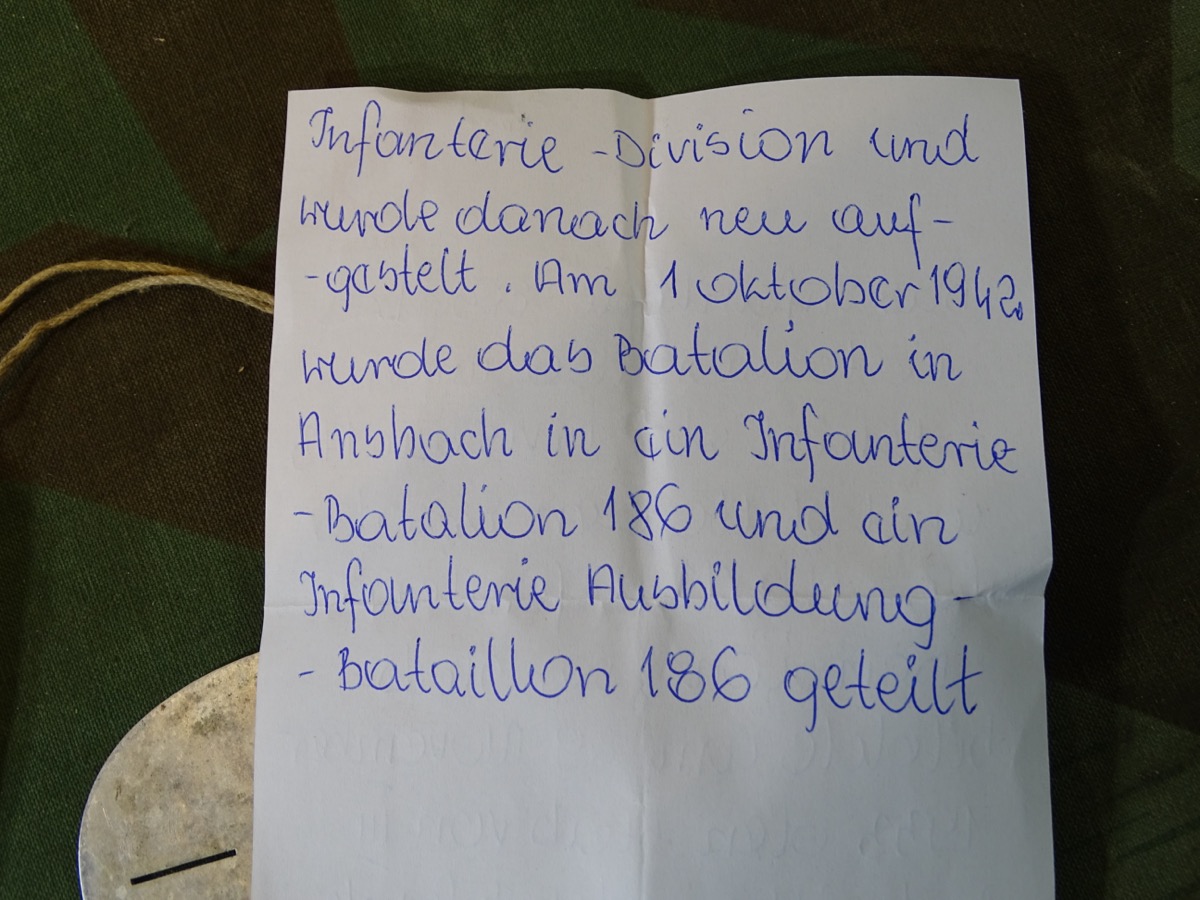 Infanterie -Division und
wurde danach neu auf-
-gestelt. Am 1 oktober 1942.
wurde das Batalion in
Ansbach in ein Infanterie
-Batalion 186 und ein
Infanterie Ausbildung-
-Bataillon 186 geteilt